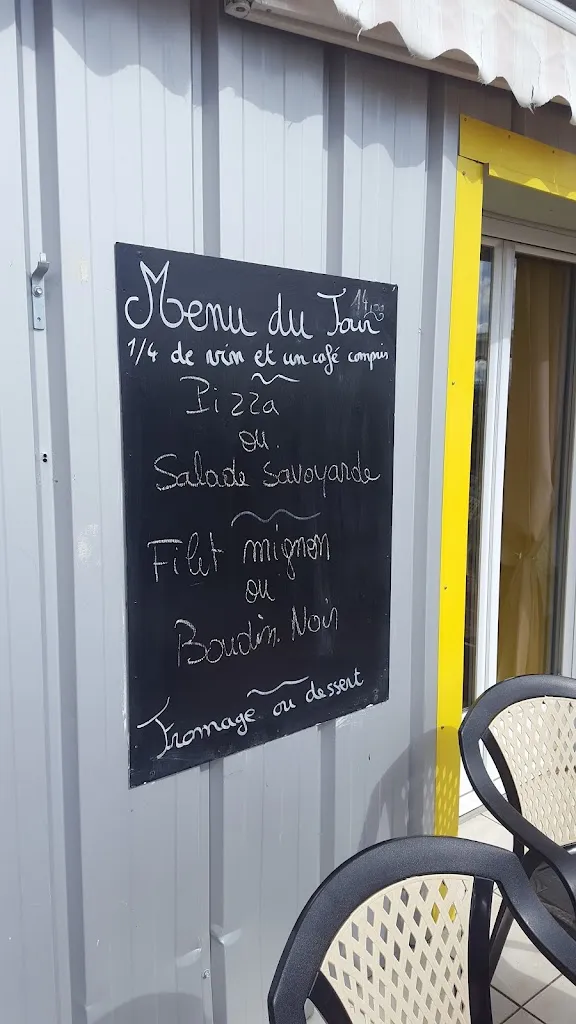 Menu du Jour 14,00
1/4 de vin et un café compris
Pizza
ou
Salade Savoyarde
Filet mignon
ou
Boudin Noir
Fromage ou dessert